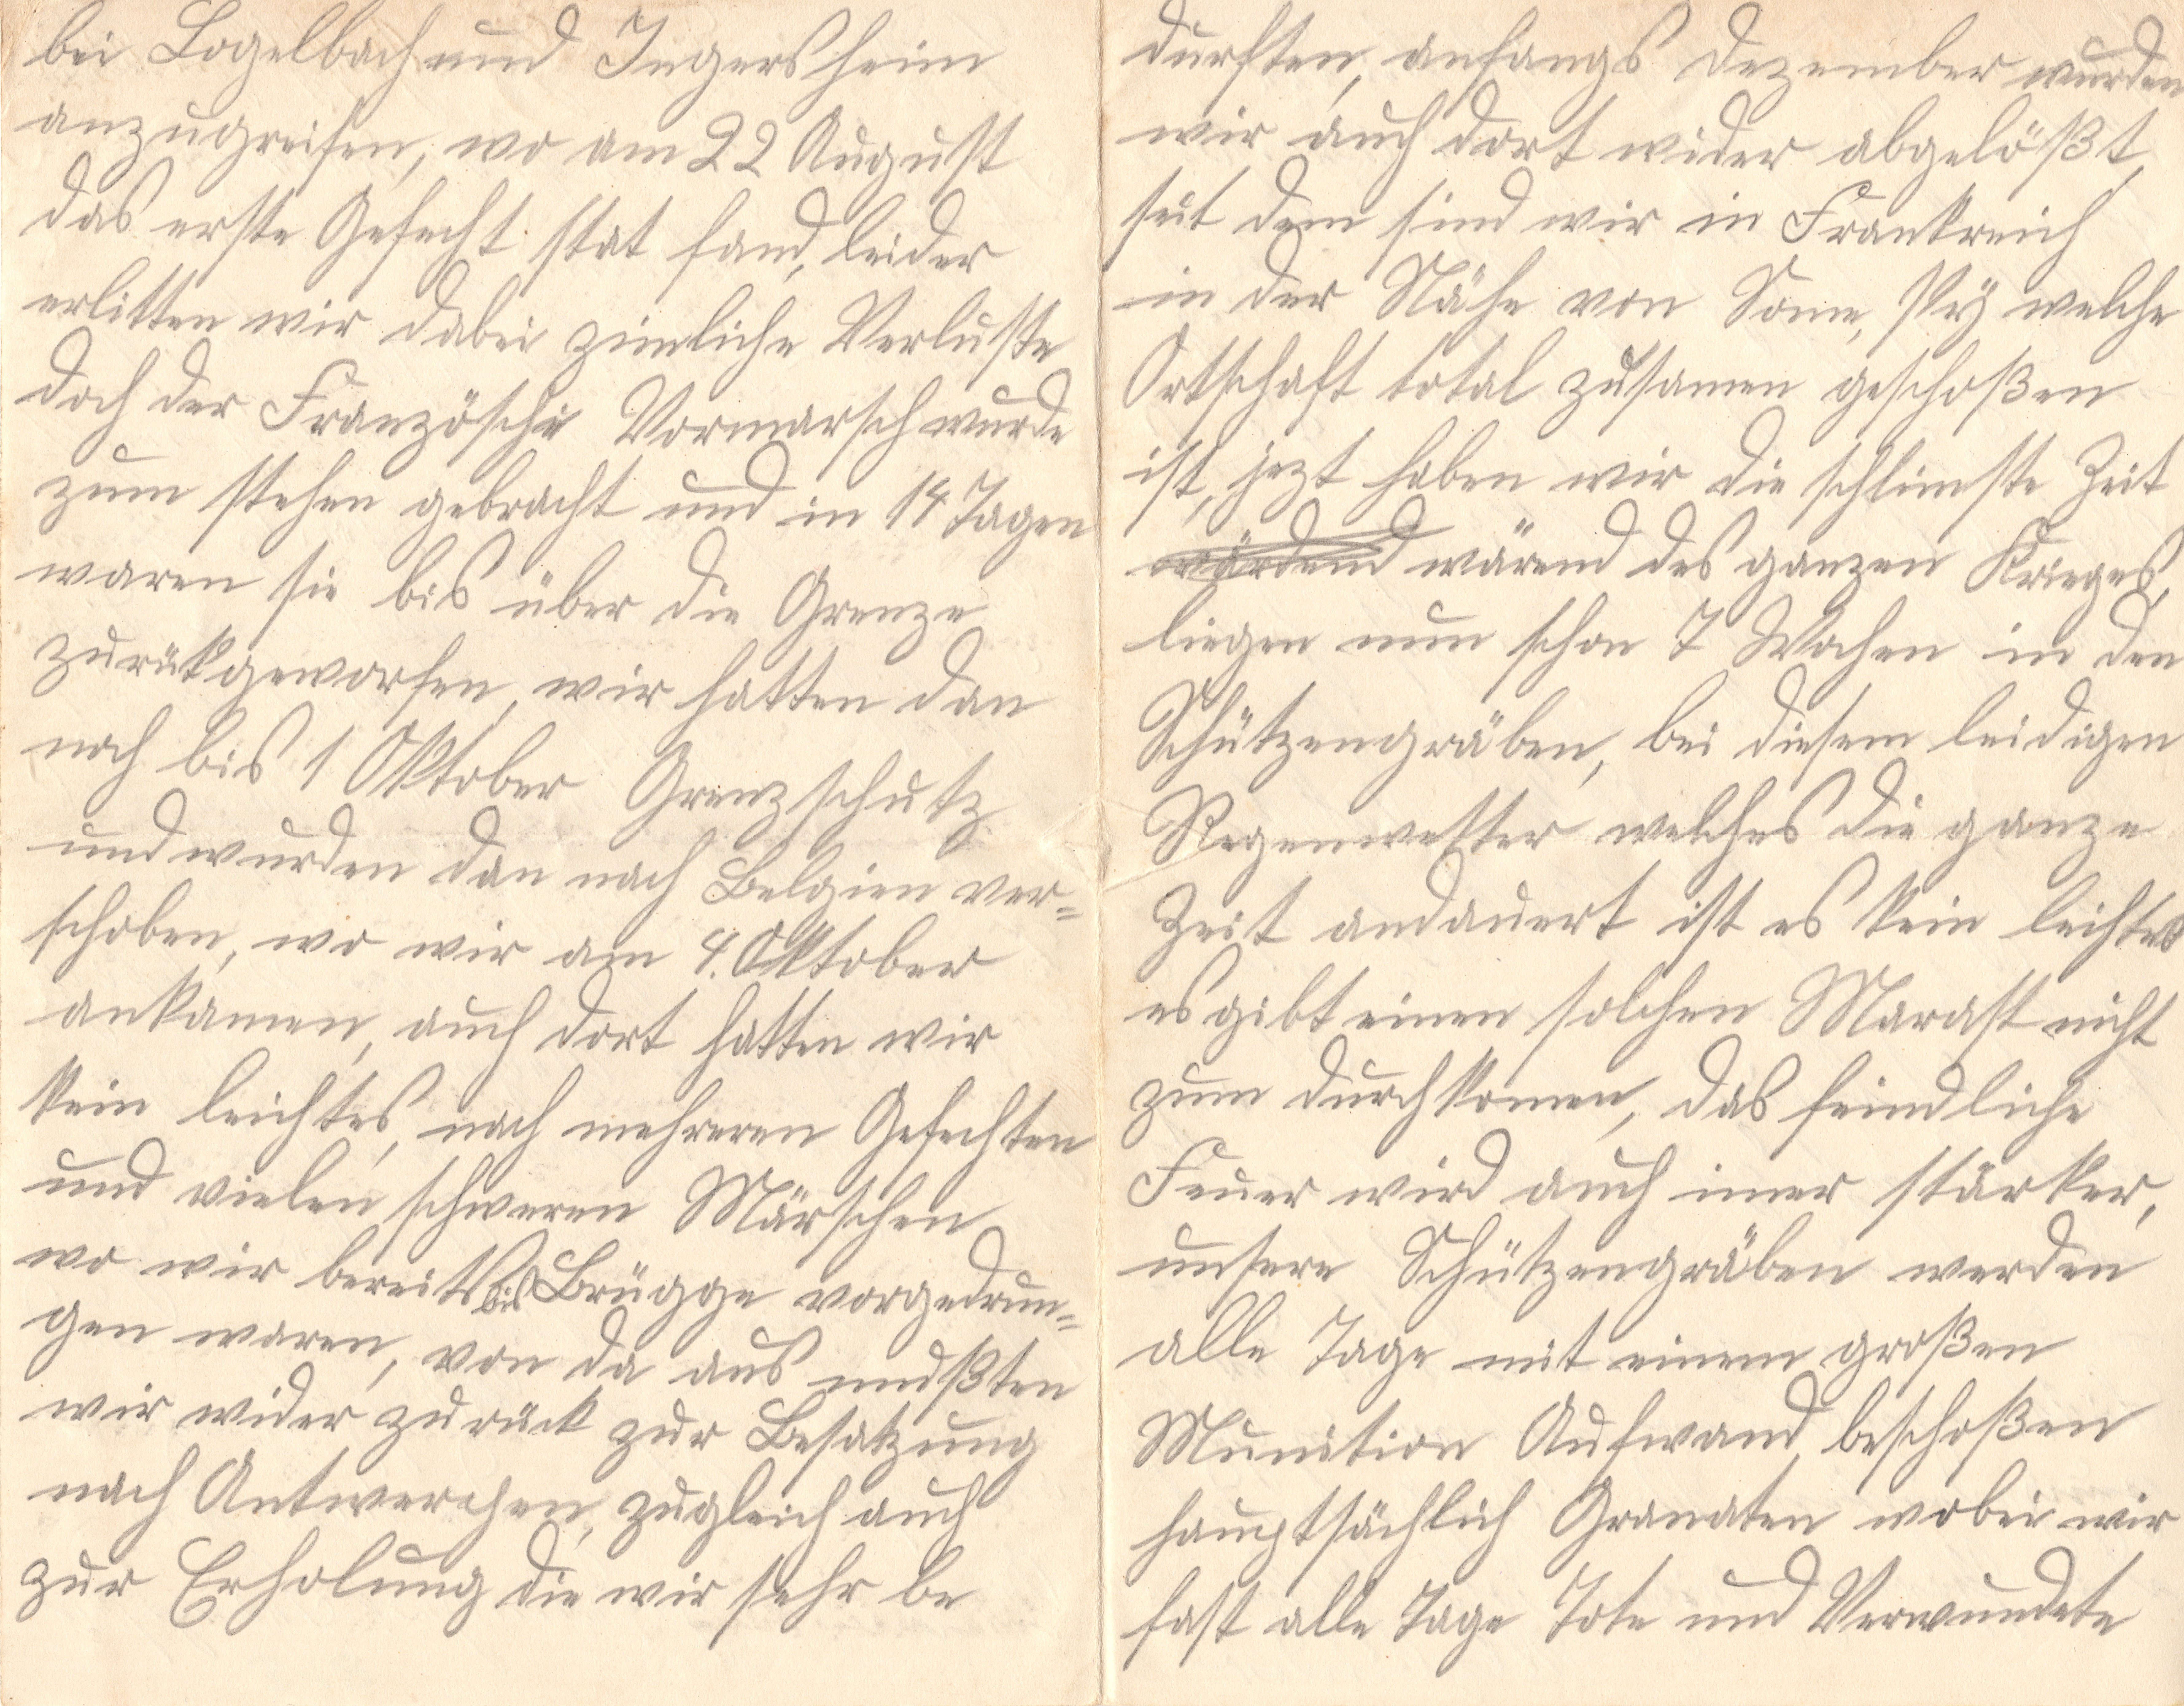 bei Logelbach und Ingersheim
anzugreifen, wo am 22 August
das erste Gefecht stat fand, leider
erlitten wir dabei zimliche Verluste
doch der Französche Vormarsch wurde
zum stehen gebracht und in 14 Tagen
waren sie bis über die Grenze
zurükgeworfen, wir hatten dan
noch bis 1 Oktober Grenzschutz
und wurden dan nach Belgien ver=
schoben, wo wir am 4. Oktober
ankamen, auch dort hatten wir
kein leichtes, nach mehreren Gefechten
und vielen schweren Märschen
wo wir bereits bis Brügge vorgedrun=
gen waren, von da aus mußten
wir wider zurück zur Besatzung
nach Antwerpen, zugleich auch
zur Erholung die wir sehr be
durften, anfangs Dezember wurden
wir auch dort wider abgelößt,
seit dem sind wir in Frankreich
in der Nähe von Some, Py welche
Ortschaft total zusamen geschoßen
ist, jezt haben wir die schlimste Zeit
wärend des ganzen Krieges,
liegen nun schon 7 Wochen in den
Schützengräben, bei diesem leidigen
Regenwetter welches die ganze
Zeit andauert ist es kein leichtes
es gibt einen solchen Marast nicht
zum durchkomen, das feindliche
Feuer wird auch imer stärker,
unsere Schützengräben werden
alle Tage mit einem großen
Munition Aufwand beschoßen
hauptsächlich Granaten wobei wir
fast alle Tage Tote und Verwundete